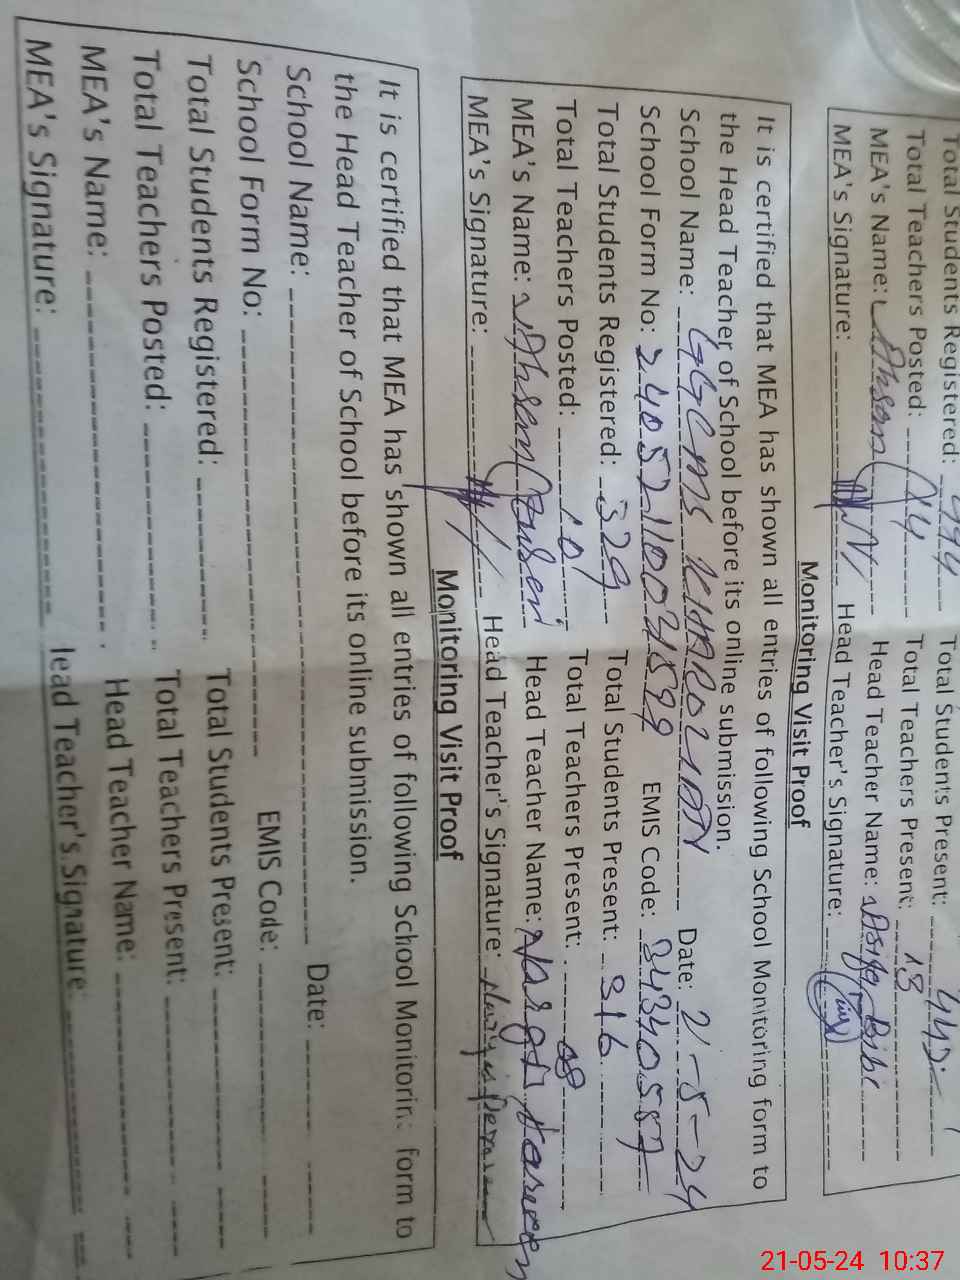 Total Students Registered: 494 Total Students Present: 442
Total Teachers Posted: 14 Total Teachers Present: 13
MEA's Name: Ahsan Head Teacher Name: Asifa Bibi
MEA's Signature: Head Teacher's Signature:
Monitoring Visit Proof
It is certified that MEA has shown all entries of following School Monitoring form to
the Head Teacher of School before its online submission.
School Name: GGCMS KHAROLIAN Date: 2-5-24
School Form No: 240521100 EMIS Code: 34340587
Total Students Registered: 329 Total Students Present: 316
Total Teachers Posted: 10 Total Teachers Present: 08
MEA's Name: Ahsan Head Teacher Name: Nargis Parveen
MEA's Signature: Head Teacher's Signature:
Monitoring Visit Proof
It is certified that MEA has shown all entries of following School Monitoring form to
the Head Teacher of School before its online submission.
School Name: Date:
School Form No: EMIS Code:
Total Students Registered: Total Students Present:
Total Teachers Posted: Total Teachers Present:
MEA's Name: Head Teacher Name:
MEA's Signature: Head Teacher's Signature:
21-05-24 10:37